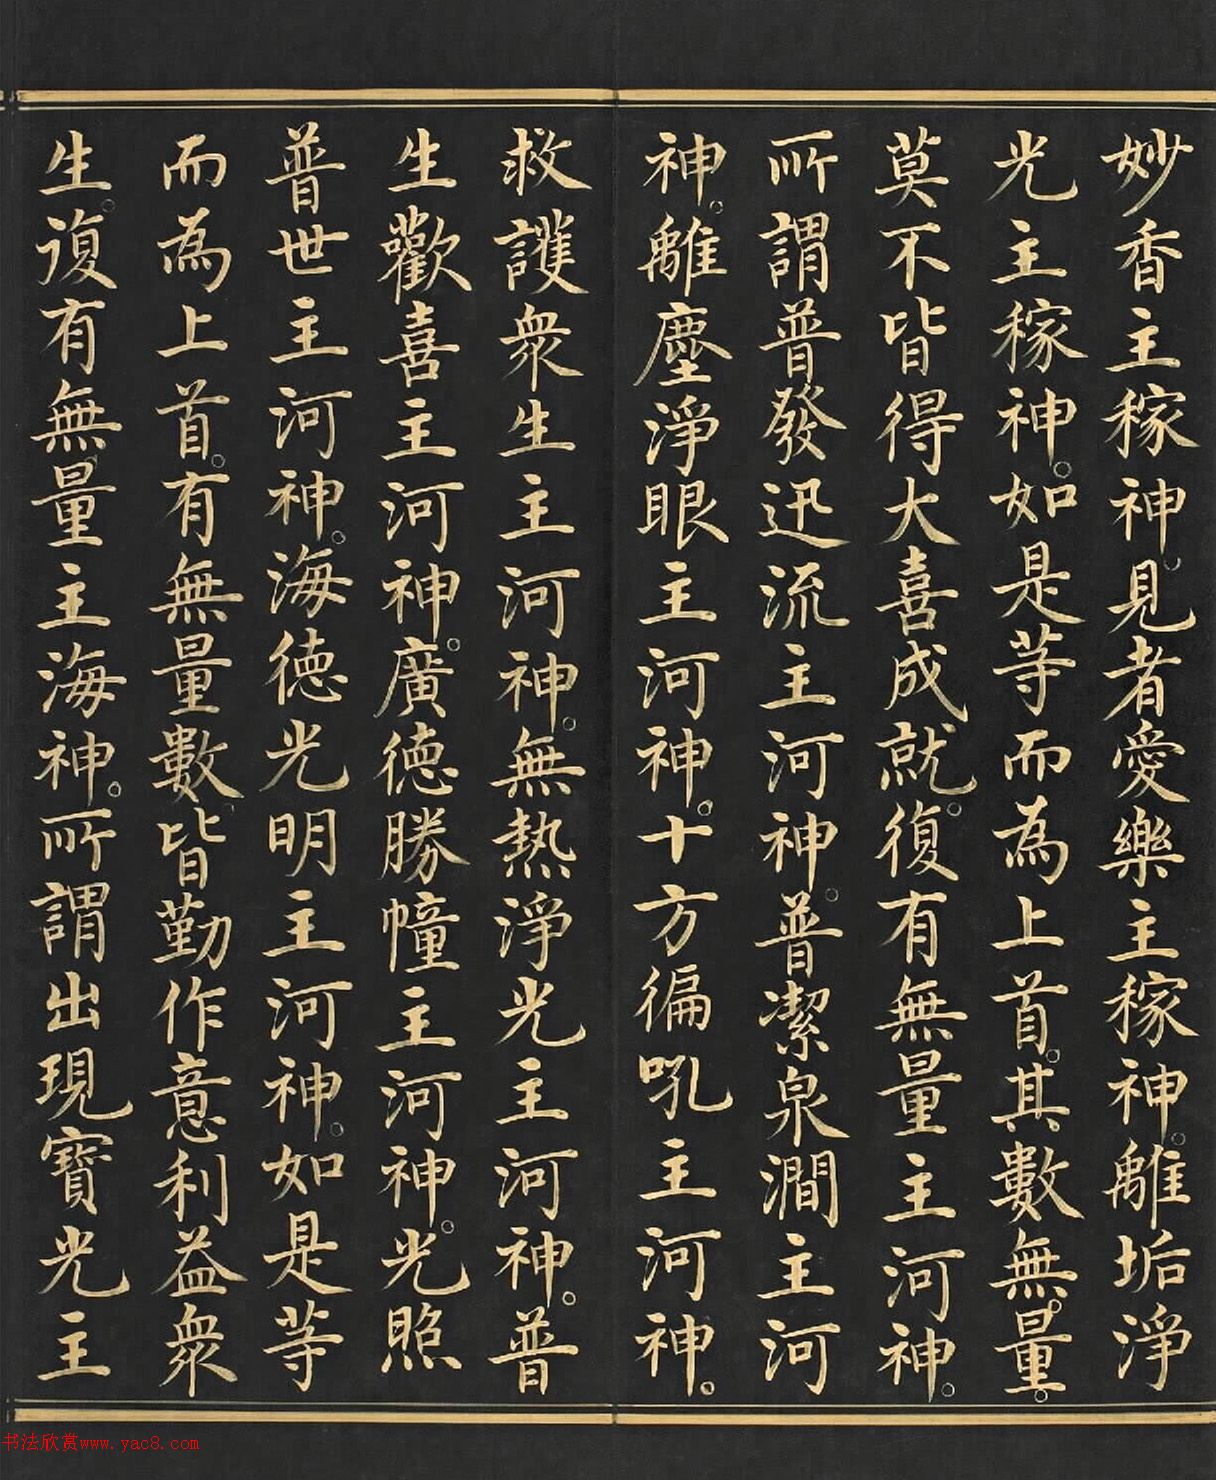 妙香主稼神。見者愛樂主稼神。離垢淨
光主稼神。如是等而為上首。其數無量。
莫不皆得大喜成就。復有無量主河神。
所謂普發迅流主河神。普潔泉澗主河
神。離塵淨眼主河神。十方徧吼主河神。
救護衆生主河神。無熱淨光主河神。普
生歡喜主河神。廣德勝幢主河神。光照
普世主河神。海德光明主河神。如是等
而為上首。有無量數皆勤作意利益衆
生。復有無量主海神。所謂出現寶光主
书法欣赏www.yac8.com